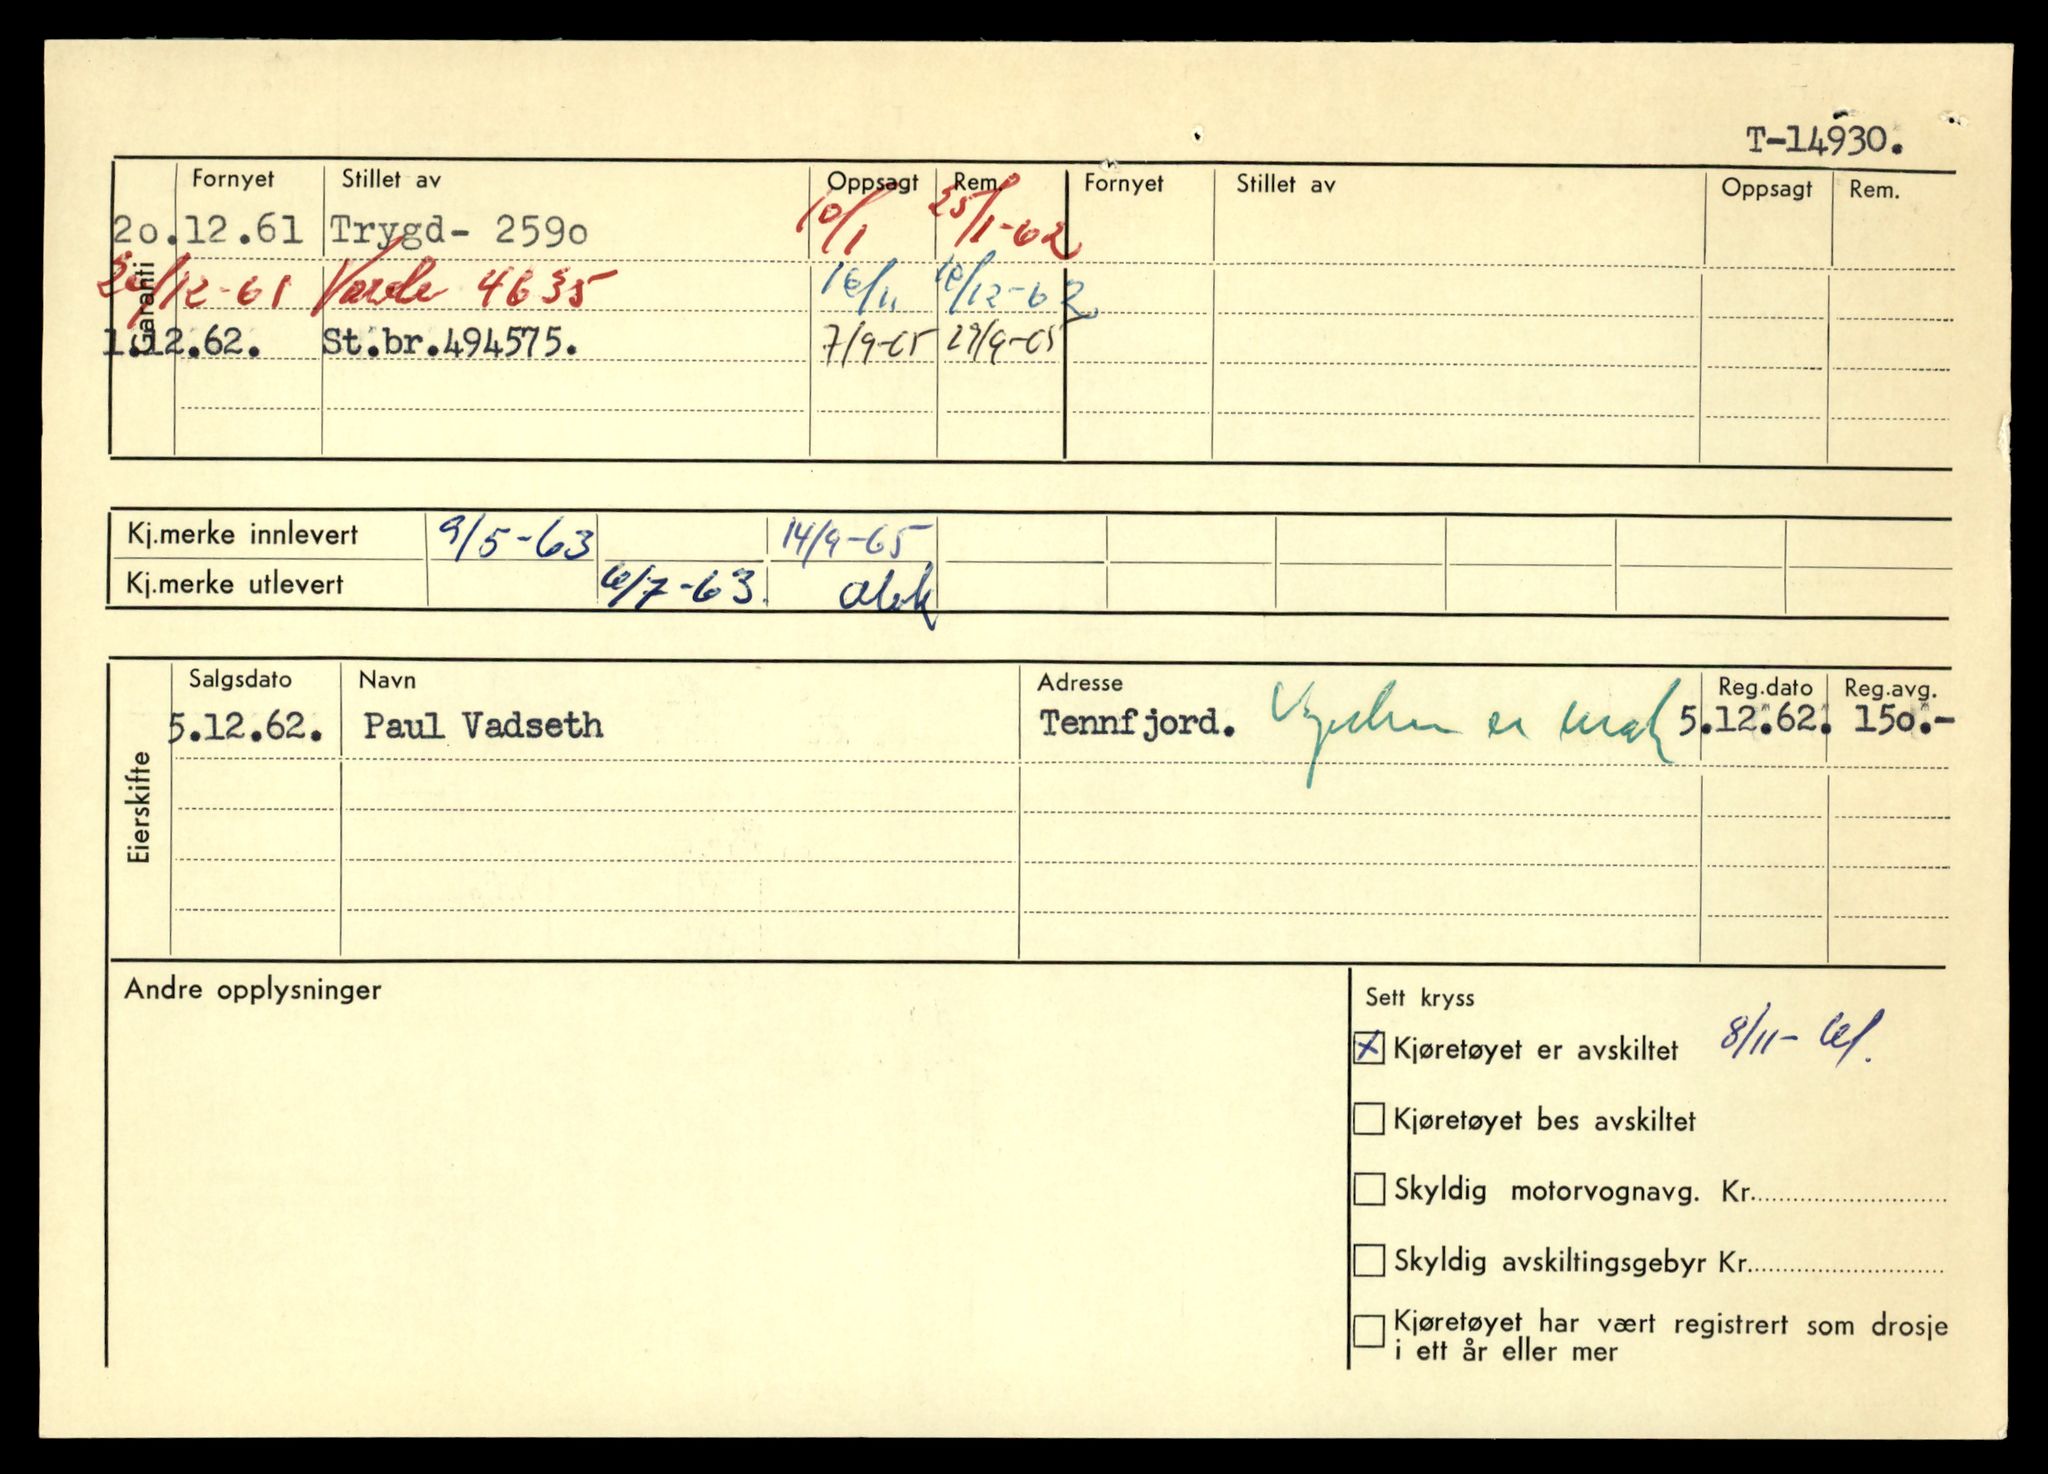 T-14930.
Garanti
Fornyet Stillet av Oppsagt Rem. Fornyet Stillet av Oppsagt Rem.
20.12.61 Trygd- 2590 10/1 25/1-62
/12-61 4635 16/11 /12-62
1.12.62. St.br.494575. 7/9-65 29/9-65
Kj.merke innlevert 9/5-63 14/9-65
Kj.merke utlevert /7-63
Eierskifte
Salgsdato Navn Adresse Reg.dato Reg.avg.
5.12.62. Paul Vadseth Tennfjord. er 5.12.62. 150.-
Andre opplysninger
Sett kryss
Kjøretøyet er avskiltet 8/11-61.
Kjøretøyet bes avskiltet
Skyldig motorvognavg. Kr.
Skyldig avskiltingsgebyr Kr.
Kjøretøyet har vært registrert som drosje
i ett år eller mer